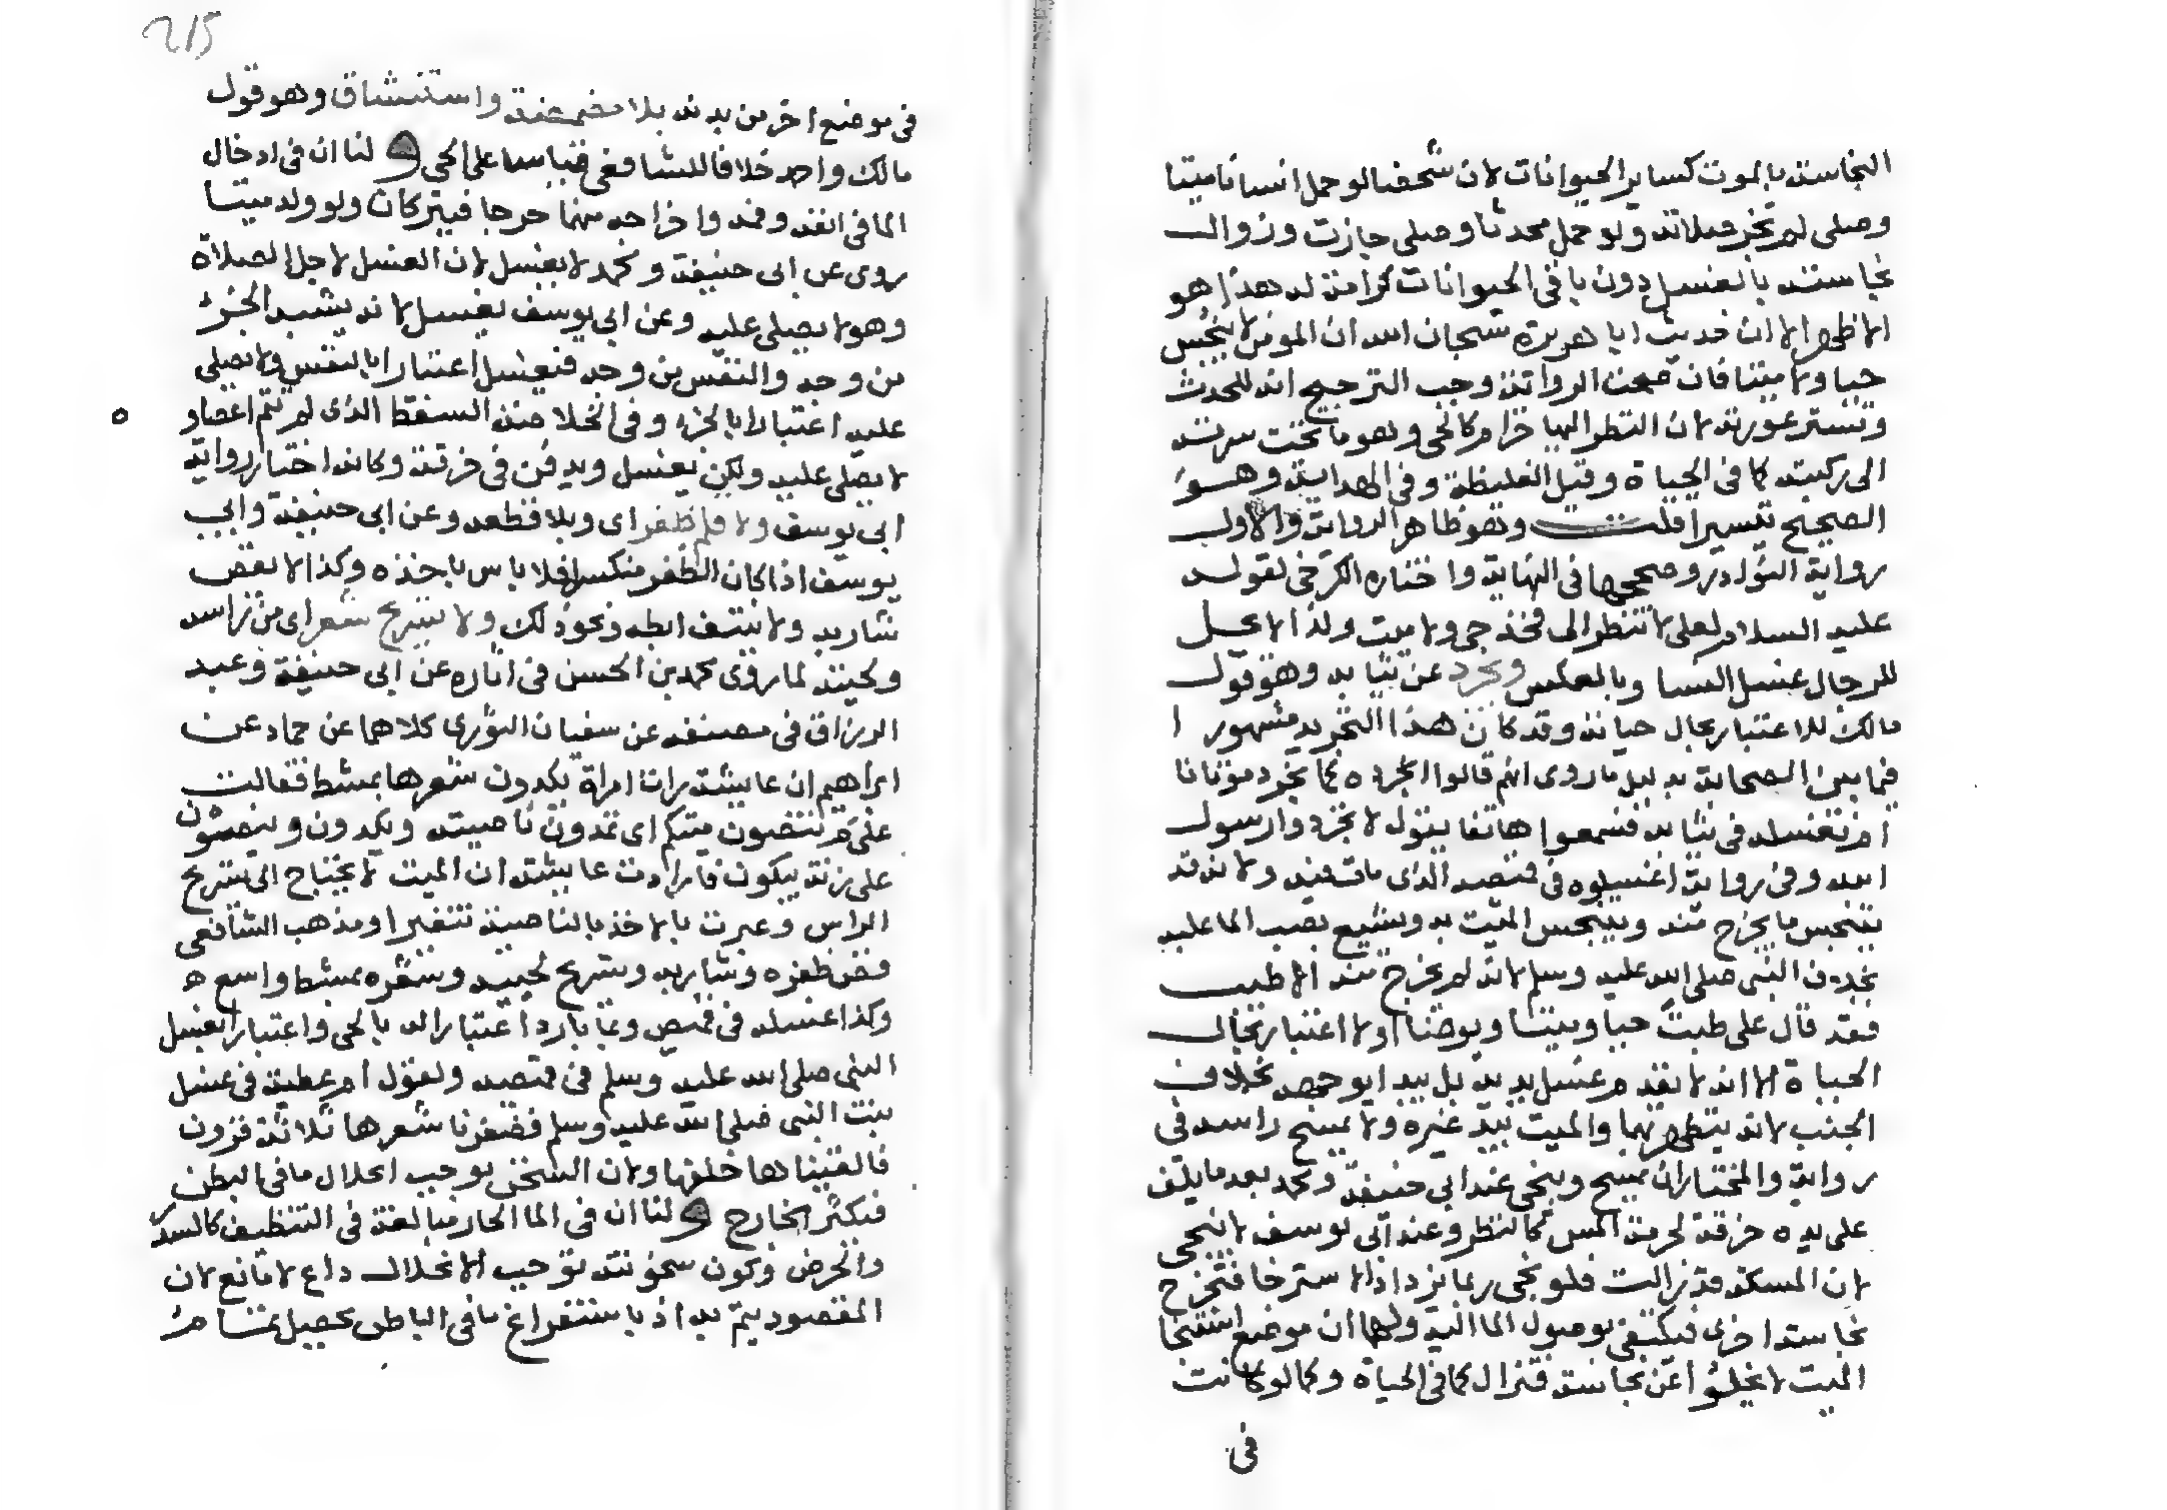 النجاسة بالموت كساير الحيوانات لان شخصا لو حمل انسانا ميتا
وصلى لم تجز صلاته ولو حمل محدثا وصلى جازت وزوال
نجاسته بالغسل دون باقي الحيوانات كرامة له هذا هو
الاظهر الا ان حديث ابا هريرة سبحان الله ان المومن لا ينجس
حيا ولا ميتا فان صحت الرواية وجب الترجيح انه للحدث
وتستر عورته لان النظر اليها حرام كالحي وهو ما تحت سرته
الى ركبته كما في الحياة وقيل الغليظة وفي الهداية وهو
الصحيح تيسيرا قلت وهو ظاهر الرواية والاول
رواية النوادر وصححها في النهاية واختاره الكرخي لقوله
عليه السلام لعلي لا تنظر الى فخذ حي ولا ميت ولذا لا يحل
للرجال غسل النسا وبالعكس ويجرد عن ثيابه وهو قول
مالك للاعتبار بحال حياته وقد كان هذا التجريد مشهورا
فيما بين الصحابة بدليل ما روى انهم قالوا انجرده كما نجرد موتانا
ام نغسله في ثيابه فسمعوا هاتفا يقول لا تجردوا رسول
الله وفي رواية اغسلوه في قميصه الذي مات فيه ولانه قد
يتنجس ما يخرج منه ويتنجس الميت به ويشيع بصب الما عليه
بخلاف النبي صلى الله عليه وسلم لانه لم يخرج منه الا طيب
فقد قال علي طبت حيا وميتا ويوضا اولا اعتبارا بحال
الحياة الا انه لا يقدم غسل يديه بل يبدا بوجهه بخلاف
الجنب لانه يتطهر بهما والميت بيد غيره ولا يمسح راسه في
رواية والمختار ان يمسح وينجى عند ابي حنيفة ومحمد بعد ما يلف
على يده خرقة لحرمة المس كالنظر وعند ابي يوسف لا ينجى
لان المسكة قد زالت فلو نجي ربما يزداد الاسترخا فتخرج
نجاسة اخرى فيكتفى بوصول الما اليه ولهما ان موضع استنجا
الميت لا يخلوا عن نجاسة فتزال كما في الحياة وكما لو كانت
في
215
في موضع اخر من بدنه بلا مضمضة واستنشاق وهو قول
مالك واحمد خلافا للشافعي قياسا على الحي ولنا ان في ادخال
الما في انفه وفمه واخراجه منهما حرجا فيتركان ولو ولد ميتا
روى عن ابي حنيفة ومحمد لا يغسل لان الغسل لاجل الصلاة
وهو لا يصلى عليه وعن ابي يوسف يغسل لانه يشبه الجزء
من وجه والنفس من وجه فيغسل اعتبارا بالنفس ولا يصلى
عليه اعتبارا بالجزء وفي الخلاصة السقط الذي لم تتم اعضاو
لا يصلى عليه ولكن يغسل ويدفن في خرقة وكانه اختار رواية
ابي يوسف ولا قلم ظفر اي وبلا قطعه وعن ابي حنيفة وابي
يوسف اذا كان الظفر منكسرا فلا باس باخذه وكذا لا يقص
شاربه ولا ينتف ابطه ونحو ذلك ولا تسريح شعر اي من راسه
ولحيته لما روى محمد بن الحسن في اثاره عن ابي حنيفة وعبد
الرزاق في مصنفه عن سفيان الثوري كلاهما عن حماد عن
ابراهيم ان عايشة رات امراة يكدون شعرها بمشط فقالت
علام تنصون ميتكم اي تمدون ناصيته ويكدون وينصون
على زنة يبكون فارادت عايشة ان الميت لا يحتاج الى تسريح
الراس وعبرت بالاخذ بالناصية تنفيرا ومذهب الشافعي
قص ظفره وشاربه وتسريح لحيته وشعره بمشط واسع ه
وكذا غسله في قميص وبما بارد اعتبارا له بالحي واعتبارا بغسل
النبي صلى الله عليه وسلم في قميصه ولقول ام عطية في غسل
بنت النبي صلى الله عليه وسلم فضفرنا شعرها ثلاثة قرون
فالقيناها خلفها ولان السخن يوجب انحلال ما في البطن
فيكثر الخارج ولنا ان في الما الحار مبالغة في التنظيف كالسدر
والحرض وكون سخونته توجب الانحلال داع لا مانع لان
المقصود يتم به اذ باستفراغ ما في الباطن يحصل تمام